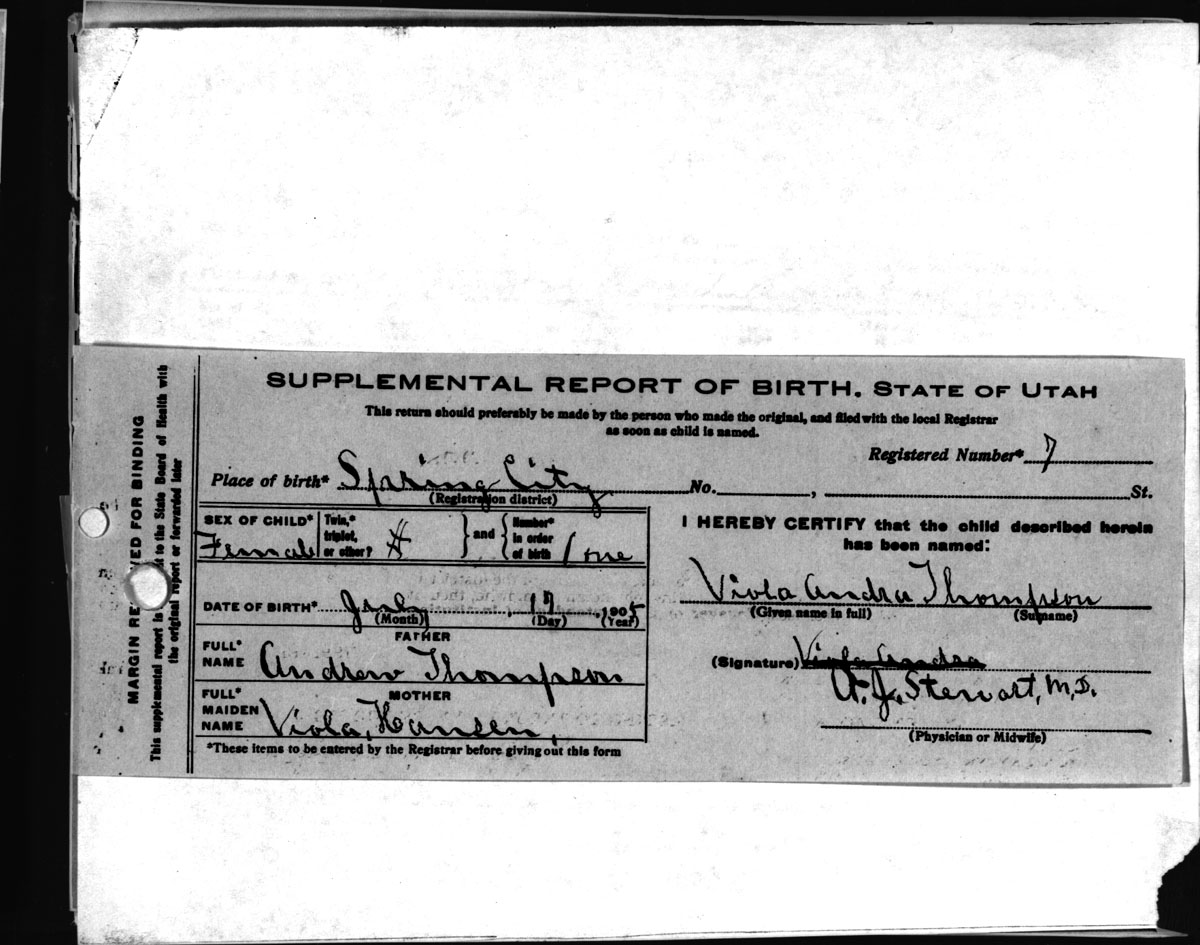 SUPPLEMENTAL REPORT OF BIRTH. STATE OF UTAH
This return should preferably be made by the person who made the original, and filed with the local Registrar
as soon as child is named.
Registered Number* 7
Place of birth* Spring City No. , St.
(Registration district)
SEX OF CHILD* Female
Twin,* triplet, or other? #
and
Number* in order of birth 1 one
DATE OF BIRTH* July 17, 1905
(Month) (Day) (Year)
FATHER
FULL* NAME Andrew Thompson
MOTHER
FULL* MAIDEN NAME Viola, Hansen,
*These items to be entered by the Registrar before giving out this form
I HEREBY CERTIFY that the child described herein
has been named:
Viola Andra Thompson
(Given name in full) (Surname)
(Signature) Viola Andra
A. J. Stewart, M.D.
(Physician or Midwife)
MARGIN RE VED FOR BINDING
This supplemental report is to the State Board of Health with
the original report or forwarded later